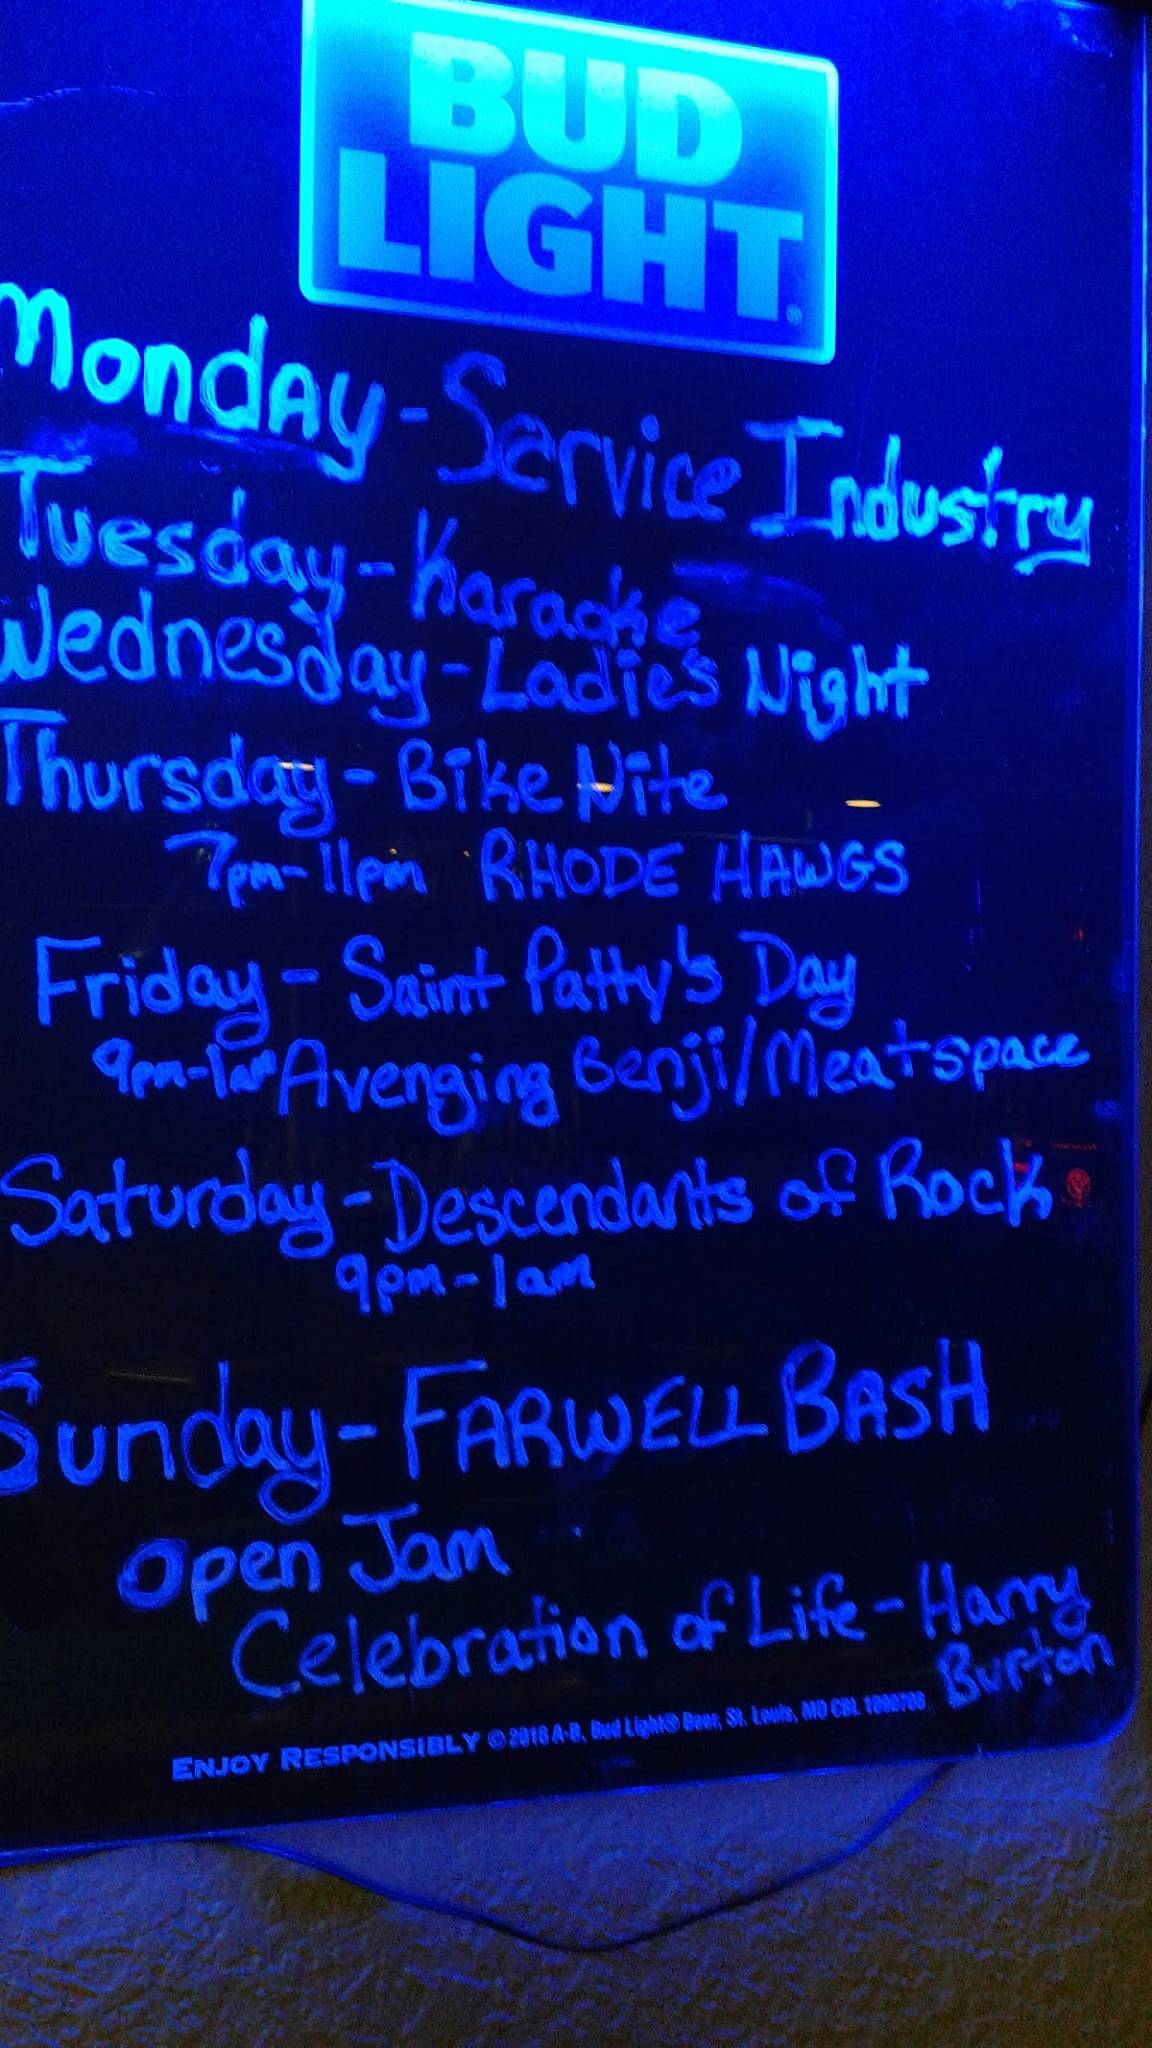 BUD
LIGHT
Monday - Service Industry
Tuesday - Karaoke
Wednesday - Ladie's Night
Thursday - Bike Nite
7pm-11pm RHODE HAWGS
Friday - Saint Patty's Day
9pm-1am Avenging Benji/Meatspace
Saturday - Descendants of Rock
9pm-1am
Sunday - FARWELL BASH
Open Jam
Celebration of Life - Harry
Burton
ENJOY RESPONSIBLY © 2016 A-B, Bud Light® Beer, St. Louis, MO CBL